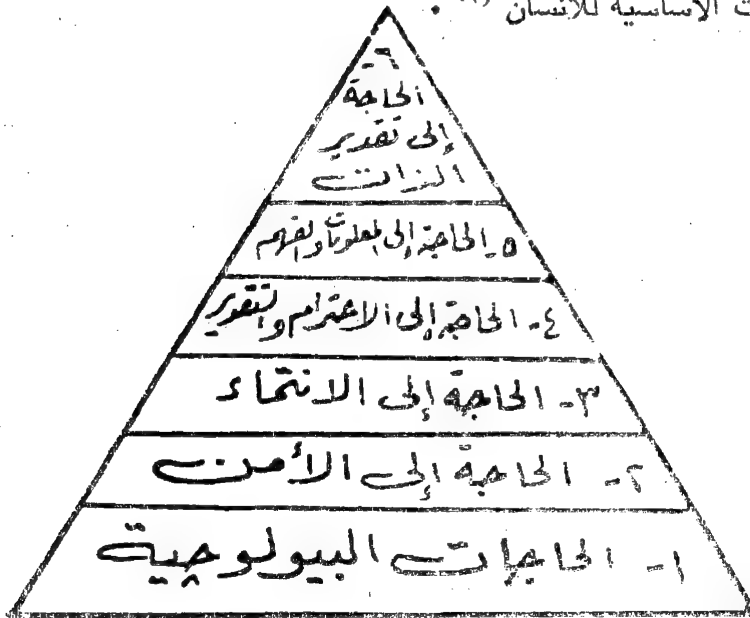 الأساسية للانسان
٦-
الحاجة
إلى تقدير
الذات
٥- الحاجة إلى المعلومات والفهم
٤- الحاجة إلى الاحترام والتقدير
٣- الحاجة إلى الانتماء
٢- الحاجة إلى الأمن
١- الحاجات البيولوجية